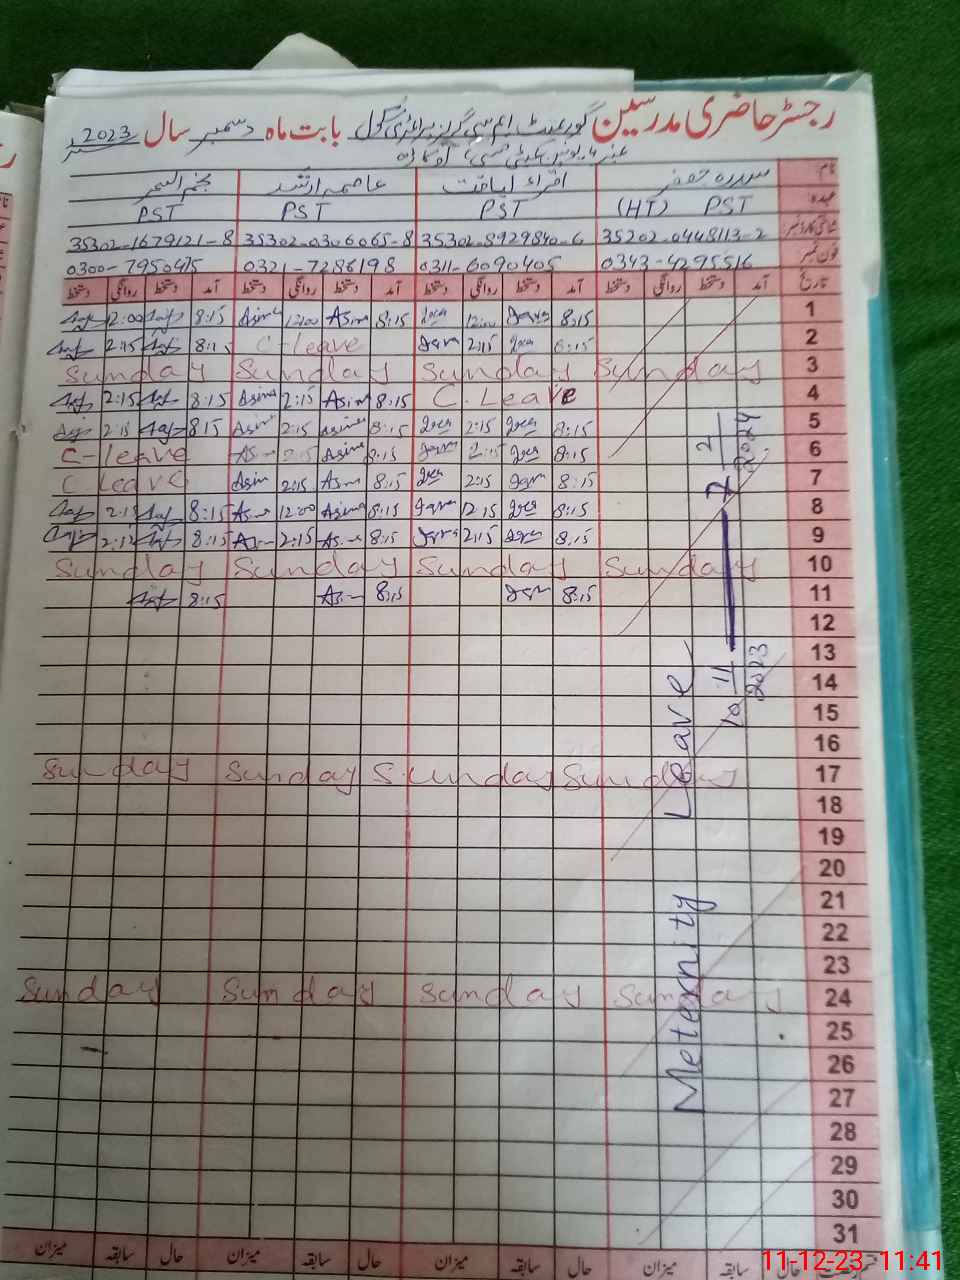 رجسٹر حاضری مدرسین گورنمنٹ ایم سی گرلز پرائمری سکول بابت ماہ دسمبر سال 2023
نام سدرہ جعفر اقراء لیاقت عاصمہ ارشد نجم السحر
عہدہ PST (HT) PST PST PST
شناختی کارڈ نمبر 35202-0448113-2 35302-8929840-6 35302-0306065-8 35302-1679121-8
فون نمبر 0343-4295516 0311-6090405 0321-7286198 0300-7950415
تاریخ آمد دستخط روانگی دستخط آمد دستخط روانگی دستخط آمد دستخط روانگی دستخط آمد دستخط روانگی دستخط
12:00 8:15 Asima 12:00 Asima 8:15 12:00 8:15 1
2:15 8:15 C-leave 2:15 8:15 2
Sunday Sunday Sunday Sunday 3
2:15 8:15 Asima 2:15 Asim 8:15 C. Leave 4
2:15 8:15 Asim 2:15 Asima 8:15 2:15 8:15 5
C-leave 2:15 Asima 8:15 2:15 8:15 6
C-Leave Asim 2:15 Asm 8:15 2:15 8:15 7
2:15 8:15 Asma 12:00 Asima 8:15 12:15 8:15 8
2:15 8:15 2:15 8:15 2:15 8:15 9
Sunday Sunday Sunday Sunday 10
8:15 Asim 8:15 8:15 11
12
13
14
15
16
Sunday Sunday Sunday Sunday 17
18
19
20
21
22
23
Sunday Sunday Sunday Sunday 24
25
26
27
28
29
30
31
Meternity Leave
10 11 2023 — 7 2 2024
حال میزان حال سابقہ میزان حال سابقہ میزان حال سابقہ میزان
11-12-23 11:41